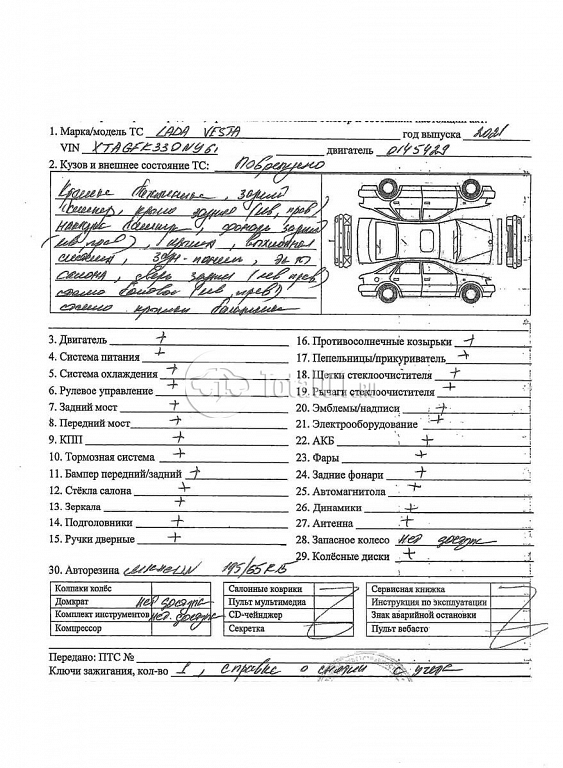 1. Марка/модель ТС LADA VESTA год выпуска 2021
VIN XTAGFK330NY61 двигатель 0145429
2. Кузов и внешнее состояние ТС: Повреждено
задний
бампер, крыло заднее (лев, прав)
фонарь задний
(лев, прав), крышка
дверь задняя (лев, прав)
стекло боковое (лев, прав)
стекло крышки багажника
3. Двигатель +
4. Система питания +
5. Система охлаждения +
6. Рулевое управление +
7. Задний мост +
8. Передний мост +
9. КПП +
10. Тормозная система +
11. Бампер передний/задний +
12. Стёкла салона +
13. Зеркала +
14. Подголовники +
15. Ручки дверные +
16. Противосолнечные козырьки +
17. Пепельницы/прикуриватель +
18. Щетки стеклоочистителя +
19. Рычаги стеклоочистителя +
20. Эмблемы/надписи +
21. Электрооборудование +
22. АКБ +
23. Фары +
24. Задние фонари +
25. Автомагнитола +
26. Динамики +
27. Антенна +
28. Запасное колесо нет доступа
29. Колёсные диски +
30. Авторезина 195/65 R15
Колпаки колёс
Домкрат нет доступа
Комплект инструментов нет доступа
Компрессор
Салонные коврики
Пульт мультимедиа
CD-чейнджер
Секретка
Сервисная книжка
Инструкция по эксплуатации
Знак аварийной остановки
Пульт вебасто
Передано: ПТС №
Ключи зажигания, кол-во 1, справка о снятии с учета